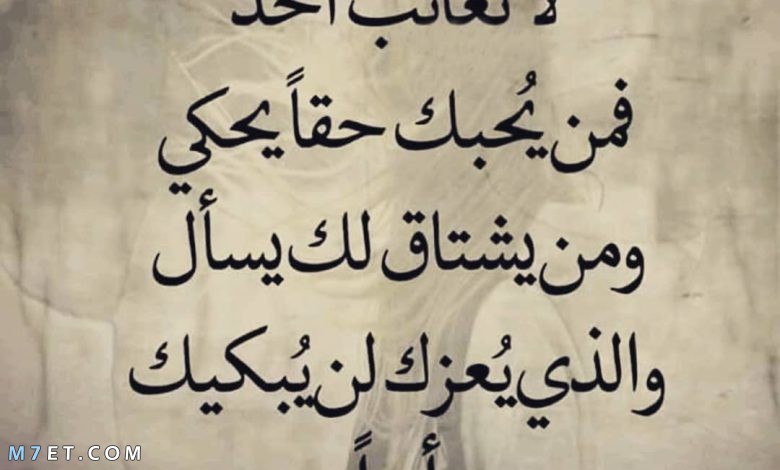 لا تعاتب أحد
فمن يُحبك حقاً يحكي
ومن يشتاق لك يسأل
والذي يُعزك لن يُبكيك
M7ET.COM